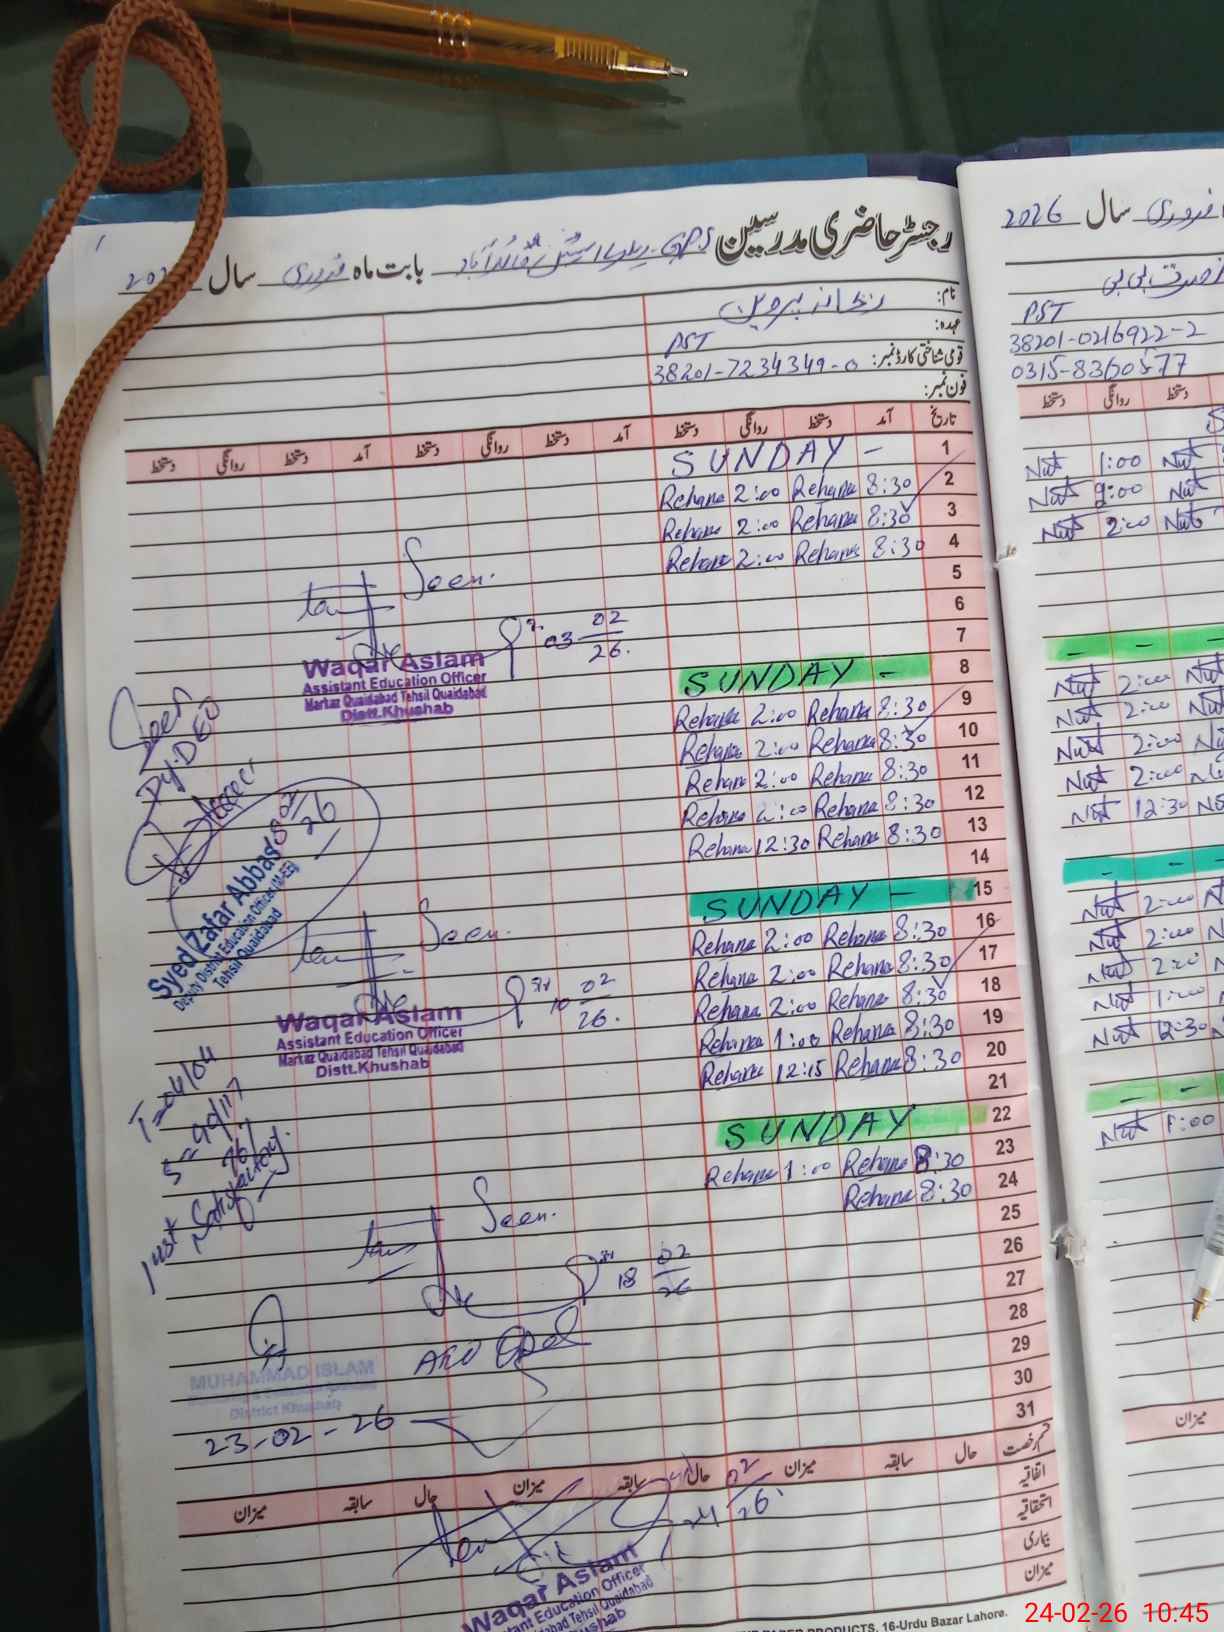 رجسٹر حاضری مدرسین GPS بابت ماہ فروری سال 202
نام: ریحانہ پروین
عہدہ: PST
قومی شناختی کارڈ نمبر: 38201-7234349-0
فون نمبر:
تاریخ آمد دستخط روانگی دستخط آمد دستخط روانگی دستخط آمد دستخط روانگی دستخط
1 SUNDAY -
2 Rehana 2:00 Rehana 8:30
3 Rehana 2:00 Rehana 8:30
4 Rehana 2:00 Rehana 8:30
5
6
7
8 SUNDAY -
9 Rehana 2:00 Rehana 8:30
10 Rehana 2:00 Rehana 8:30
11 Rehana 2:00 Rehana 8:30
12 Rehana 2:00 Rehana 8:30
13 Rehana 12:30 Rehana 8:30
14
15 SUNDAY -
16 Rehana 2:00 Rehana 8:30
17 Rehana 2:00 Rehana 8:30
18 Rehana 2:00 Rehana 8:30
19 Rehana 1:00 Rehana 8:30
20 Rehana 12:15 Rehana 8:30
21
22 SUNDAY
23 Rehana 1:00 Rehana 8:30
24 Rehana 8:30
25
26
27
28
29
30
31
قسم رخصت حال سابقہ میزان حال سابقہ میزان حال سابقہ میزان
اتفاقیہ
استحقاقیہ
بیماری
میزان
Seen.
03 02/26.
Waqar Aslam
Assistant Education Officer
Markaz Quaidabad Tehsil Quaidabad
Distt.Khushab
Seen
Dy.DEO
Syed Zafar Abbas
Deputy District Education Officer (M-EE)
Tehsil Quaidabad
Seen.
10 02/26.
Waqar Aslam
Assistant Education Officer
Markaz Quaidabad Tehsil Quaidabad
Distt.Khushab
T=04/04
Seen.
18 02/26
AEO
MUHAMMAD ISLAM
District Khushab
23-02-26
24 02/26.
Waqar Aslam
Assistant Education Officer
Tehsil Quaidabad
PAPER PRODUCTS, 16-Urdu Bazar Lahore.
فروری سال 2026
نصرت بی بی
PST
38201-0216922-2
0315-8360577
دستخط روانگی دستخط
Nut 1:00 Nut
Nut 2:00 Nut
Nut 2:00 Nut
- -
Nut 2:00 Nut
Nut 2:00 Nut
Nut 2:00
Nut 2:00
Nut 12:30
- -
Nut 2:00
Nut 2:00
Nut 2:00
Nut 1:00
Nut 12:30
- -
Nut 1:00
میزان
24-02-26 10:45